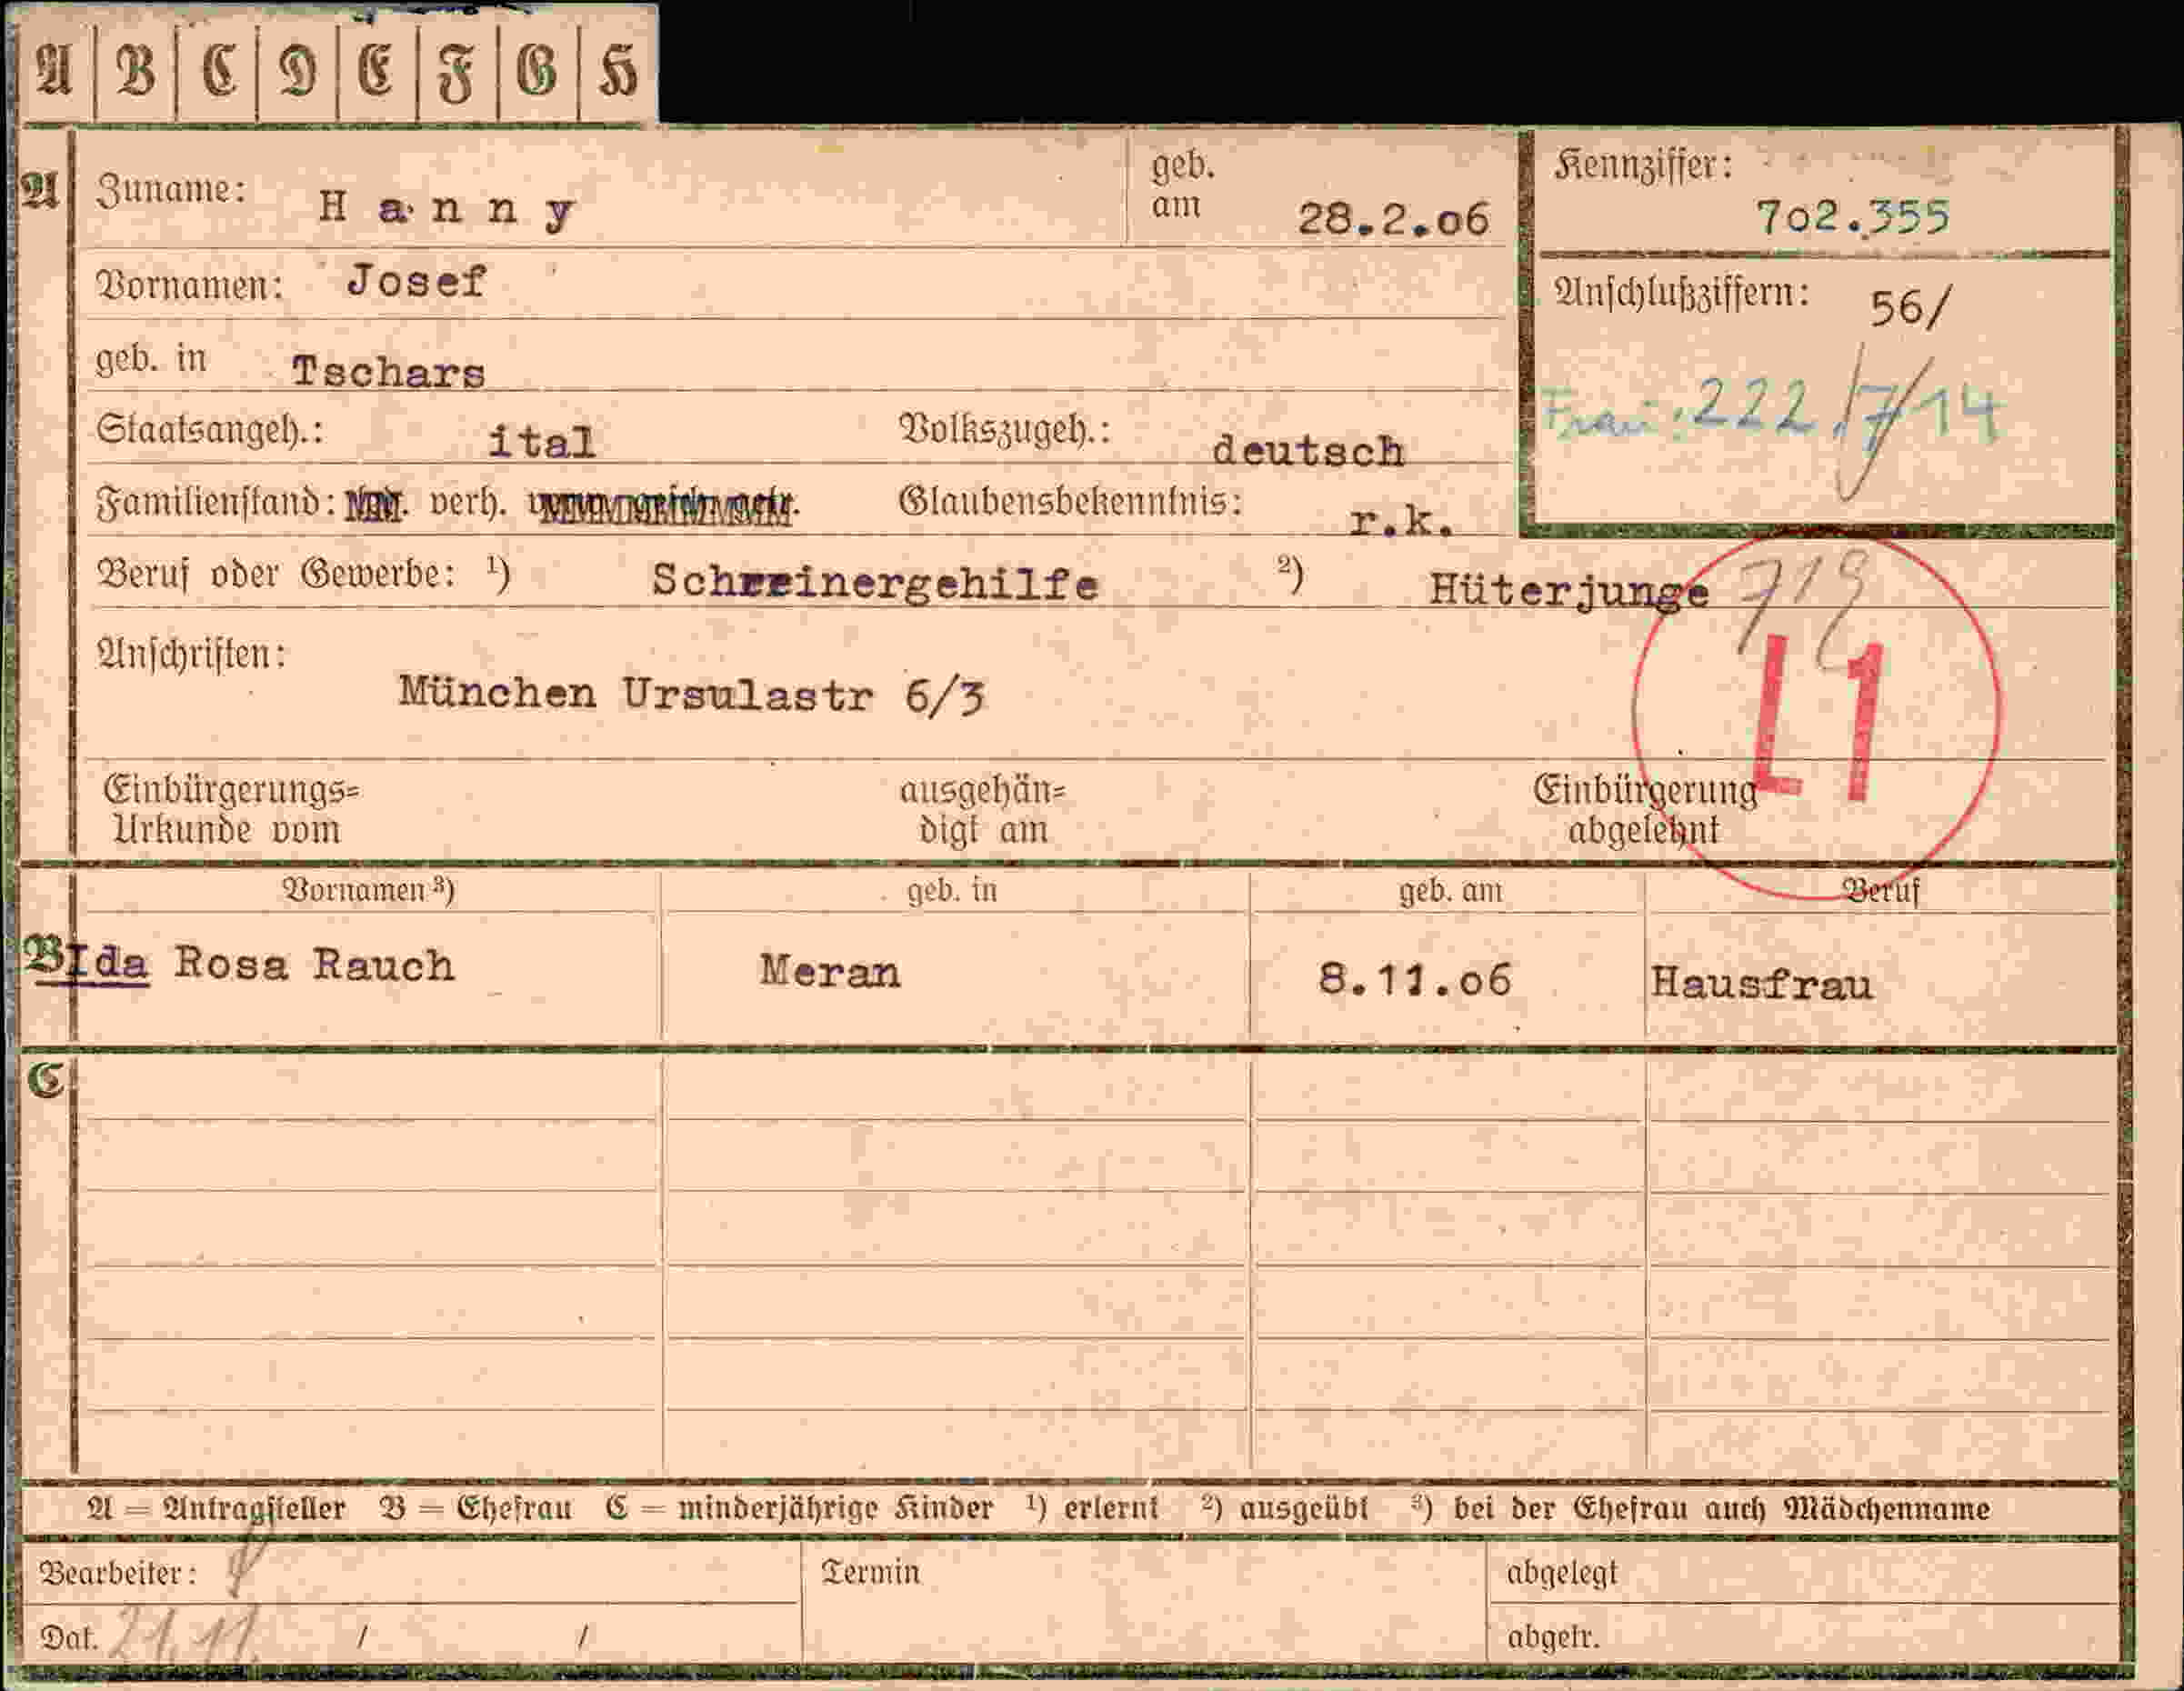 A B C D E F G H
A Zuname: Hanny geb. am 28.2.06
Kennziffer: 702.355
Vornamen: Josef
Anschlußziffern: 56/
geb. in Tschars
Frau: 222.17/14
Staatsangeh.: ital Volkszugeh.: deutsch
Familienstand: verh. Glaubensbekenntnis: r.k.
Beruf oder Gewerbe: ¹) Schreinergehilfe ²) Hüterjunge 719
Anschriften:
München Ursulastr 6/3
L1
Einbürgerungs= Urkunde vom ausgehän= digt am Einbürgerung abgelehnt
Vornamen ³) geb. in geb. am Beruf
B Ida Rosa Rauch Meran 8.11.06 Hausfrau
C
A = Antragsteller B = Ehefrau C = minderjährige Kinder ¹) erlernt ²) ausgeübt ³) bei der Ehefrau auch Mädchenname
Bearbeiter: Termin abgelegt
Dat. 21.11. / / abgetr.